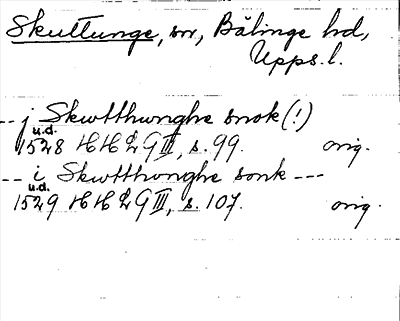 Skuttunge, sn, Bälinge hd,
Upps.l.
-- j Skwtthwnghe snok (!)
u.d.
1528 HH L G III, s. 99. orig.
-- i Skwtthwnghe sonk ---
u.d.
1529 HH L G III, s. 107. orig.